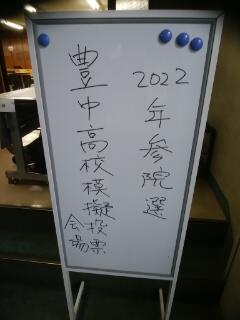 2022年参院選
豊中高校模擬投票
会場